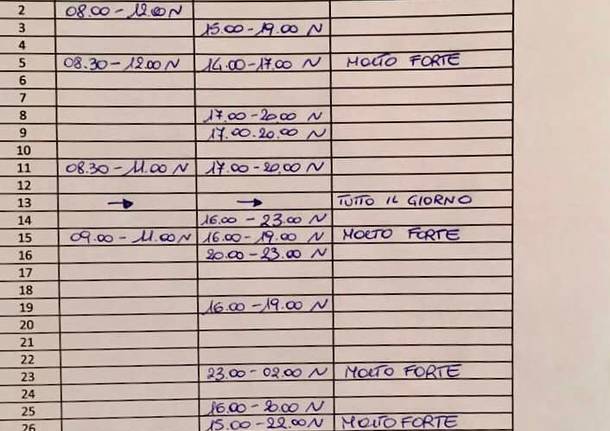 2 08.00 - 12.00 N
3 15.00 - 19.00 N
4
5 08.30 - 12.00 N 14.00 - 17.00 N MOLTO FORTE
6
7
8 17.00 - 20.00 N
9 17.00 - 20.00 N
10
11 08.30 - 11.00 N 17.00 - 20.00 N
12
13 → → TUTTO IL GIORNO
14 16.00 - 23.00 N
15 09.00 - 11.00 N 16.00 - 19.00 N MOLTO FORTE
16 20.00 - 23.00 N
17
18
19 16.00 - 19.00 N
20
21
22
23 23.00 - 02.00 N MOLTO FORTE
24
25 16.00 - 20.00 N
26 15.00 - 22.00 N MOLTO FORTE